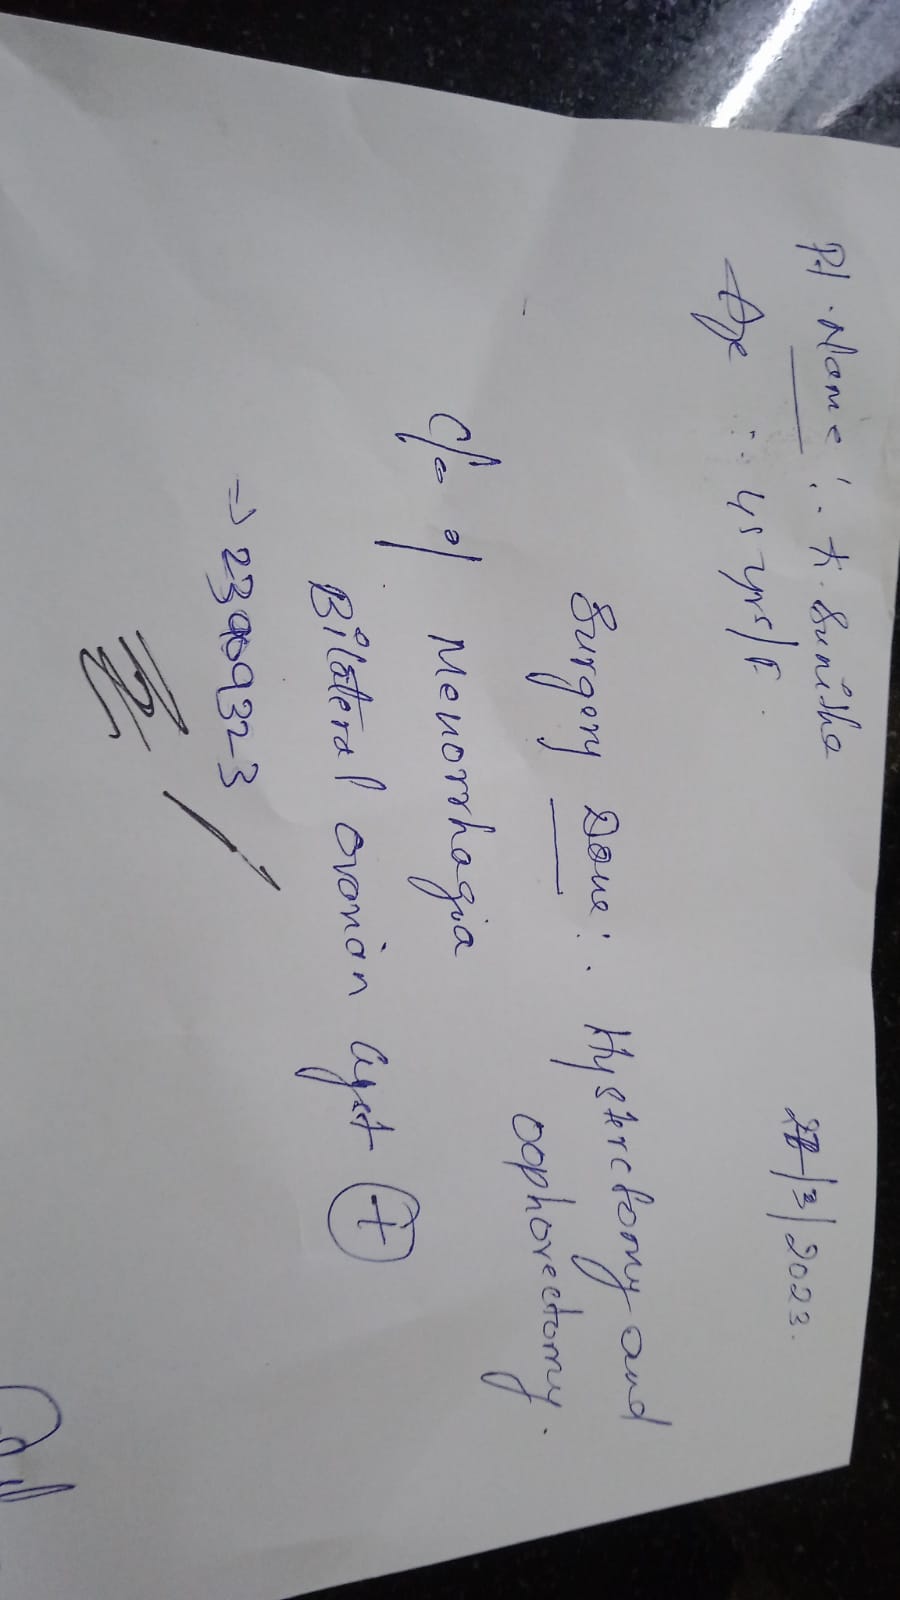 Pt. Name :. K. Sunitha
27/3/2023.
Age :. 45 yrs/F.
Surgery Done :. Hysterectomy and
oophorectomy.
C/o of Menorrhagia
Bilateral ovarian cyst (+)